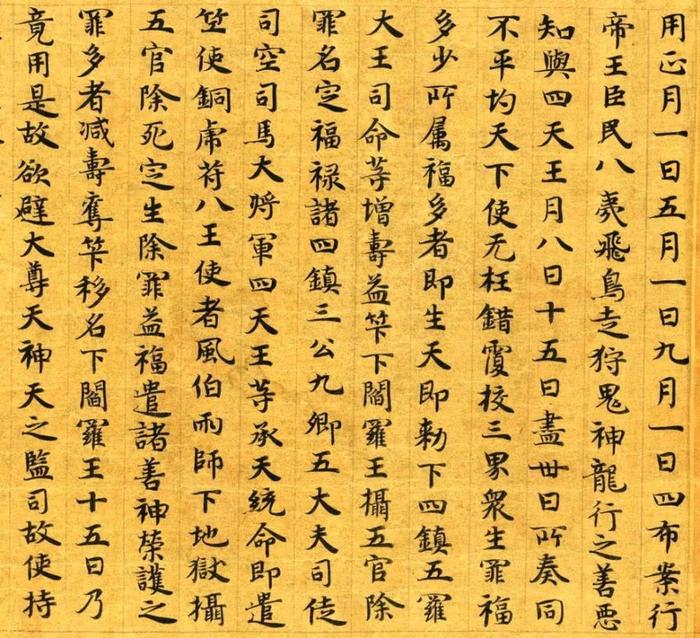 用正月一日五月一日九月一日四布案行
帝王臣民八夷飛鳥走狩鬼神龍行之善惡
知與四天王月八日十五日盡卅日所奏同
不平均天下使无枉錯覆校三界衆生罪福
多少所屬福多者即生天即勑下四鎮五羅
大王司命等增壽益筭下閻羅王攝五官除
罪名定福祿諸四鎮三公九卿五大夫司徒
司空司馬大將軍四天王等承天統命即遣
竺使銅虎符八王使者風伯雨師下地獄攝
五官除死定生除罪益福遣諸善神榮護之
罪多者减壽奪筭移名下閻羅王十五日乃
竟用是故欲避大尊天神天之監司故使持